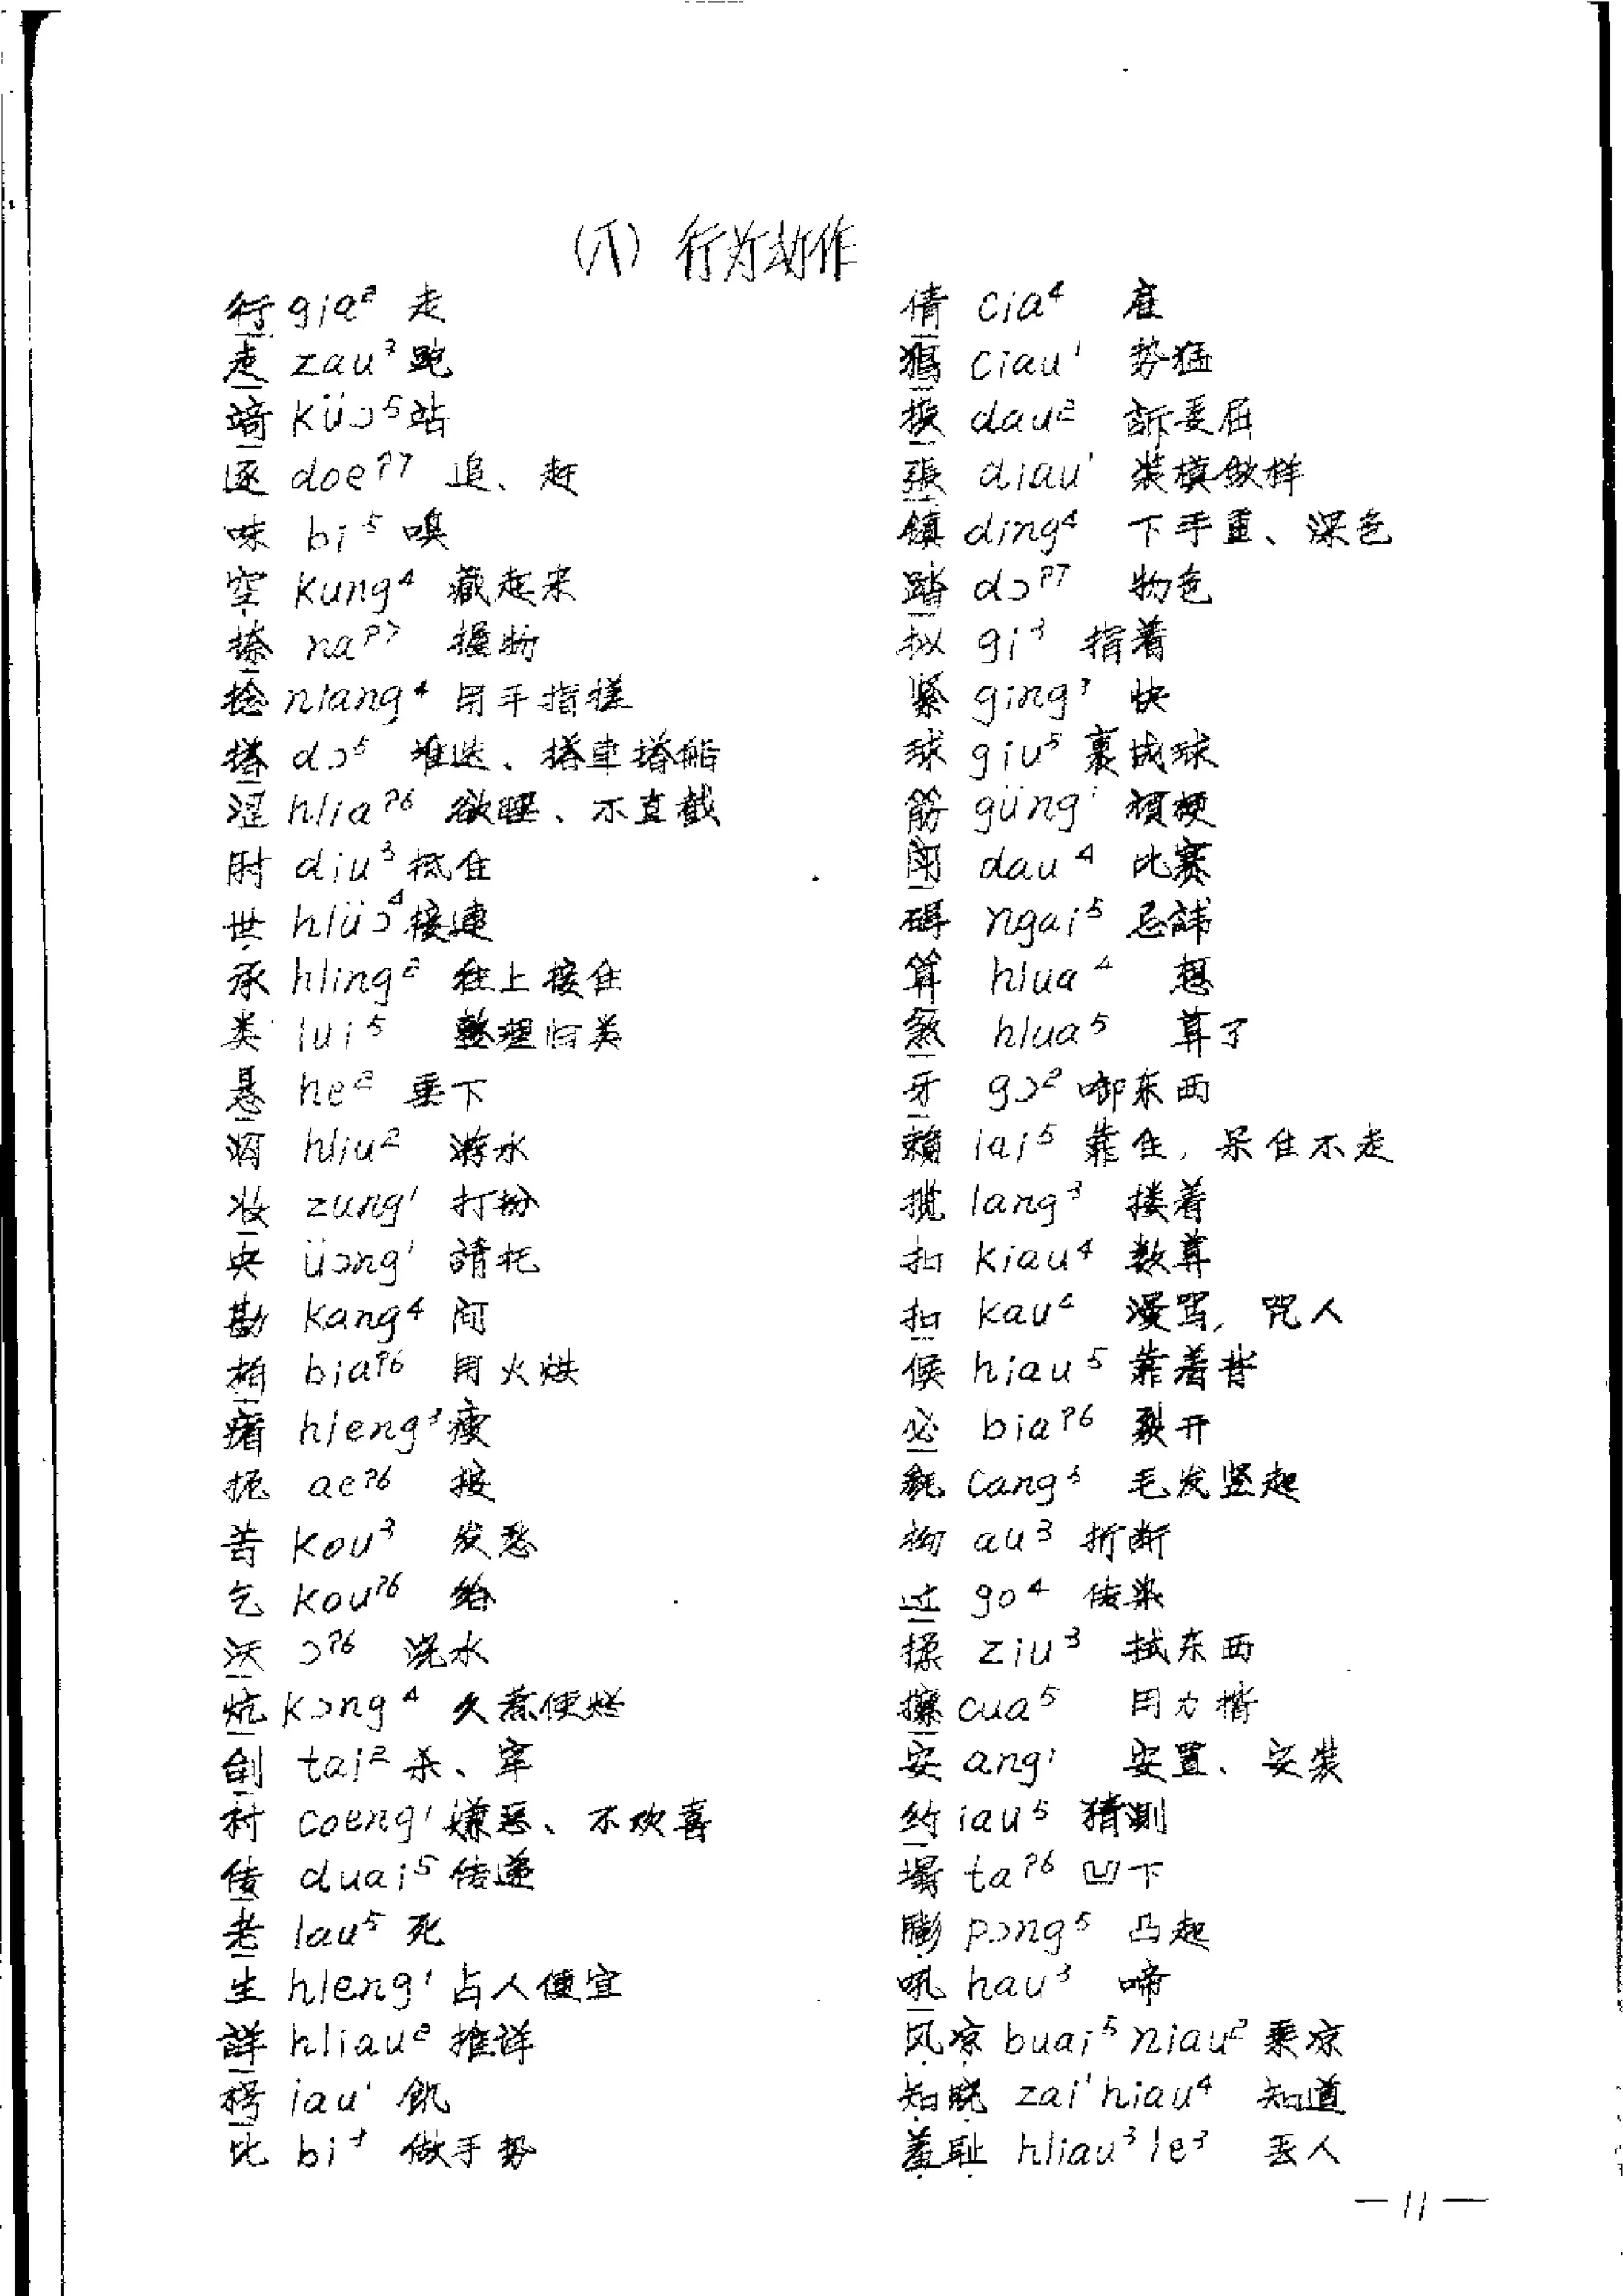 (八) 行为动作
行 gia² 走
走 zau³ 跑
埼 küɔ⁵ 站
逐 doeʔ⁷ 追、赶
味 bi⁵ 嗅
空 kung⁴ 藏起来
搽 naʔ⁷ 握物
捻 niang⁴ 用手指搓
搭 dɔ⁵ 堆迭、搭車搭船
涩 hliaʔ⁶ 欲睡、不直截
肘 diu³ 抵住
世 hlüɔ⁴ 接連
承 hling² 往上接住
类 lui⁵ 整理归类
悬 he² 垂下
hliu² 游水
妆 zung¹ 打扮
央 üɔng¹ 請托
勘 kang⁴ 间
柏 biaʔ⁶ 用火烘
瘏 hleng³ 瘦
扼 aeʔ⁶ 按
苦 kou³ 发愁
乞 kouʔ⁶ 给
沃 ɔʔ⁶ 浇水
炕 kɔng⁴ 久煮使烂
刣 tai² 杀、宰
衬 coeng¹ 嫌恶、不欢喜
传 duai⁵ 传递
老 lau⁵ 死
生 hleng¹ 占人便宜
詳 hliau² 推详
枵 iau¹ 飢
比 bi⁴ 做手势
倩 cia⁴ 雇
ciau¹ 势猛
投 dau² 訴委屈
張 diau¹ 装模做样
鎮 ding⁴ 下手重、深色
踏 dɔʔ⁷ 物色
拟 gi³ 指着
紧 ging³ 快
球 giu⁵ 裹成球
筋 güng¹ 頑梗
闘 dau⁴ 比赛
碍 ngai⁵ 忌諱
算 hlua⁴ 想
煞 hlua⁵ 算了
牙 gɔ² 啣东西
賴 lai⁵ 靠住，呆住不走
揽 lang³ 搂着
扣 kiau⁴ 数算
扣 kau⁴ 漫骂，咒人
候 hiau⁵ 靠着背
必 biaʔ⁶ 裂开
毵 cang⁵ 毛发竖起
拗 au³ 折断
过 go⁴ 传染
揉 ziu³ 拭东西
擦 cua⁵ 用力揩
安 ang¹ 安置、安装
约 iau⁵ 猜測
塌 taʔ⁶ 凹下
膨 pɔng⁵ 凸起
吼 hau³ 啼
风凉 buai⁵ niau² 乘凉
知晓 zai¹ hiau⁴ 知道
羞耻 hliau³ le³ 丢人
— 11 —